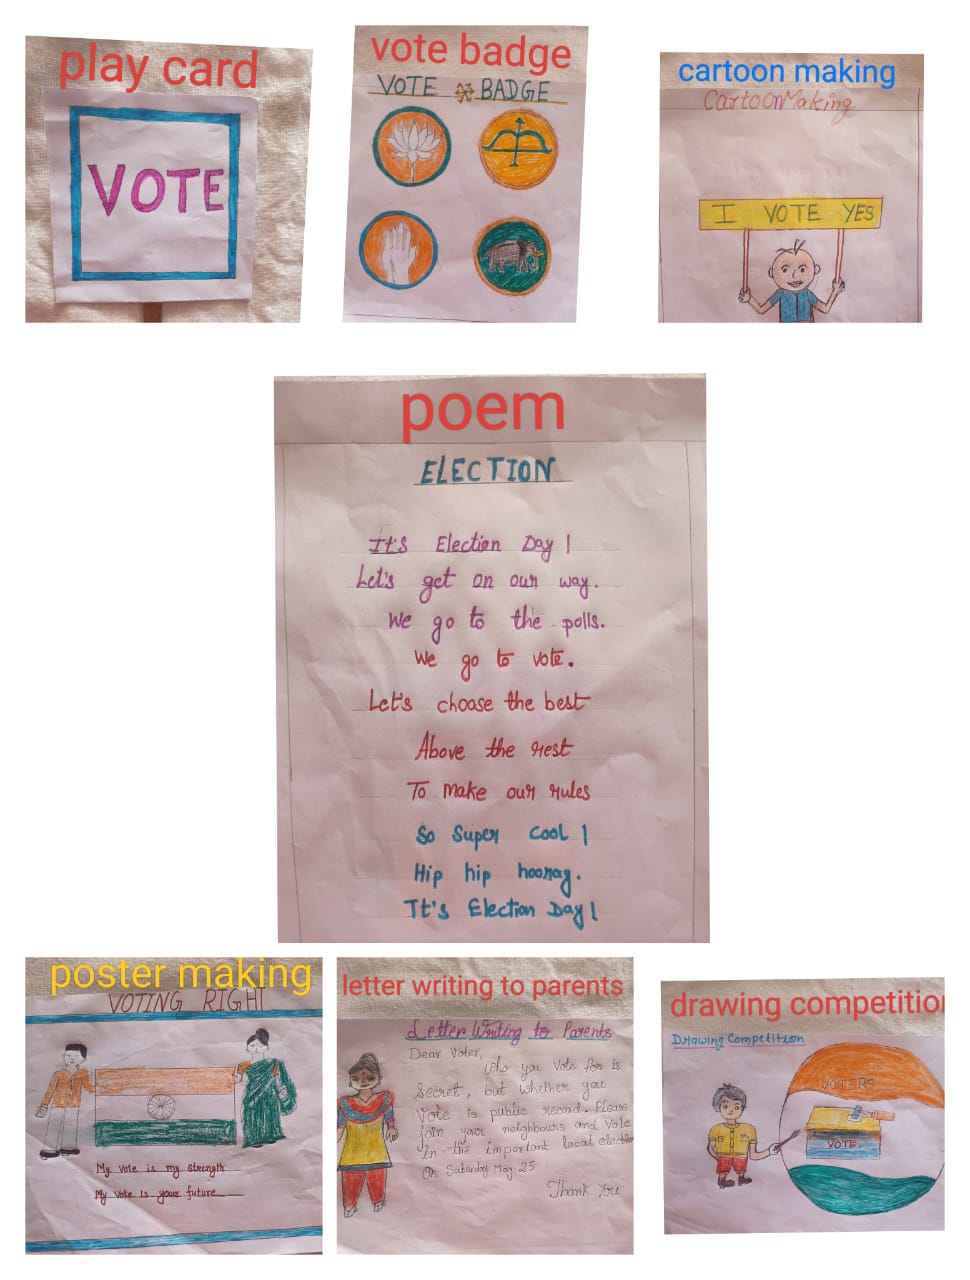 play card
VOTE
vote badge
VOTE BADGE
cartoon making
Cartoon Making
I VOTE YES
poem
ELECTION
It's Election Day!
Let's get on our way.
We go to the polls.
We go to vote.
Let's choose the best
Above the rest
To make our rules
So Super Cool!
Hip hip hooray.
It's Election Day!
poster making
VOTING RIGHT
My vote is my strength
My vote is your future
letter writing to parents
Letter Writing to Parents
Dear Voter,
Who you Vote for is
Secret, but whether you
Vote is public record. Please
join your neighbours and Vote
in the important local election
On Saturday May 25
Thank You
drawing competition
Drawing Competition
VOTERS
VOTE